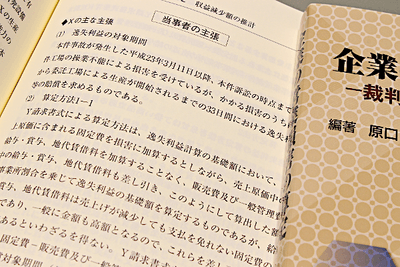 収益減少額の推計
当事者の主張
◆Xの主な主張
(1) 逸失利益の対象期間
本件事故が発生した平成23年3月11日以降、本件訴訟の時点まで
作工場の操業不能による損害を受けているが、かかる損害のうち
から委託工場による生産が開始されるまでの33日間における逸失利
等の賠償を求めるものである。
(2) 算定方法1-1
Y請求書式による算定方法は、逸失利益計算の基礎額において、
上原価に含まれる固定費を損害に加算するとしながら、売上原価中の
給与・賞与、地代賃借料を加算することなく、販売費及び一般管理
中の給与・賞与、地代賃借料も差し引き、このようにして算出した額
事業所割合を乗じて逸失利益の基礎額を算定するものであるが、給
賞与、地代賃借料は売上げが減少しても支払を免れない固定費の
であり、一般に金額も高額となるので、これらを差し
あるといわざるを得ない。
固定費－販売費及び一般
企業
―裁判
編著 原口